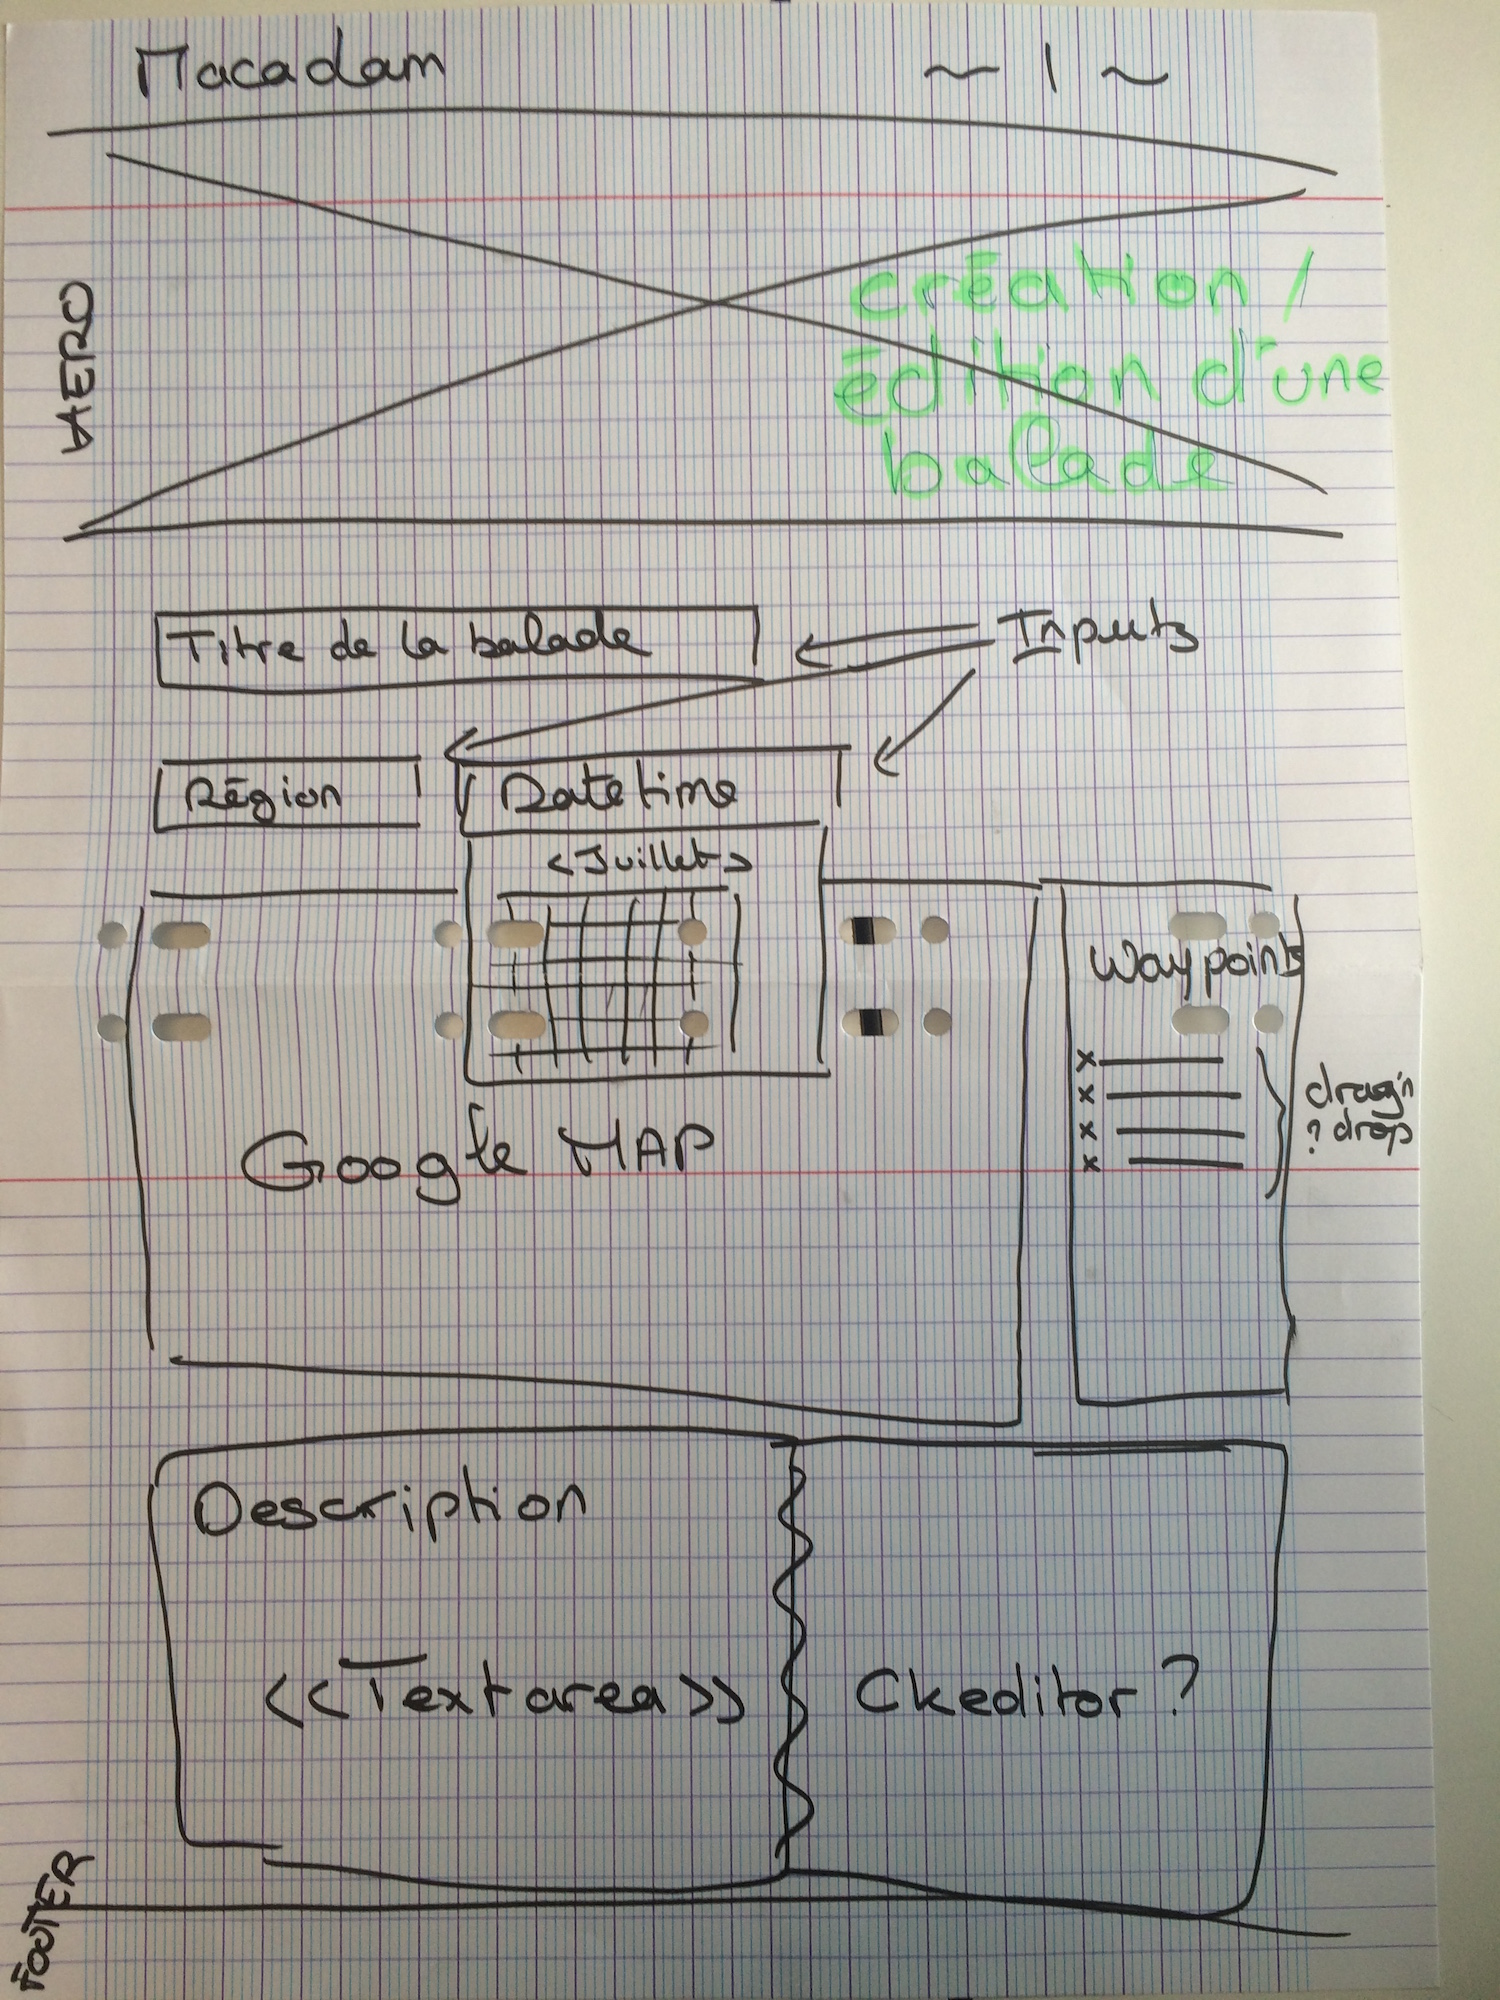 Macadam ~ | ~
HERO
création /
édition d'une
balade
Titre de la balade
Inputs
Région
Datetime
<Juillet>
Waypoints
x
x
x
x
drag'n
? drop
Google MAP
Description
<<Textarea>>
Ckeditor ?
FOOTER